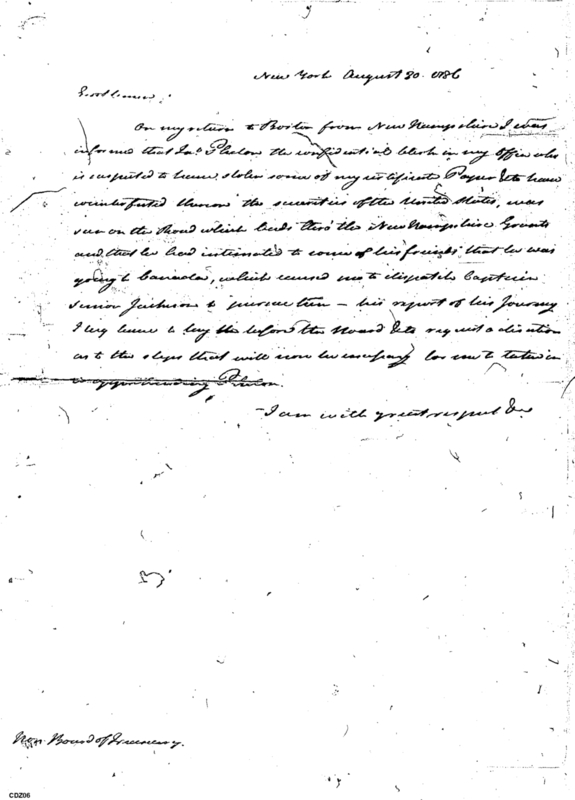 New York August 30. 1786
Gentlemen,
On my return to Boston from New Hampshire I was
informed that Jno Phelon the confidential clerk in my Office who
is suspected to have stolen some of my certificate Paper & to have
counterfeited thereon the securities of the United States, was
seen on the Road which leads thro' the New Hampshire Grants
and that he had intimated to some of his friends that he was
going to Canada, which caused me to dispatch Captain
Simon Jackson to pursue him — his report of his Journey
I beg leave to lay before the Board & to request a direction
as to the steps that will now be necessary for me to take in
apprehending Phelon.
I am with great respect &c
Hon. Board of Treasury.
CDZ06